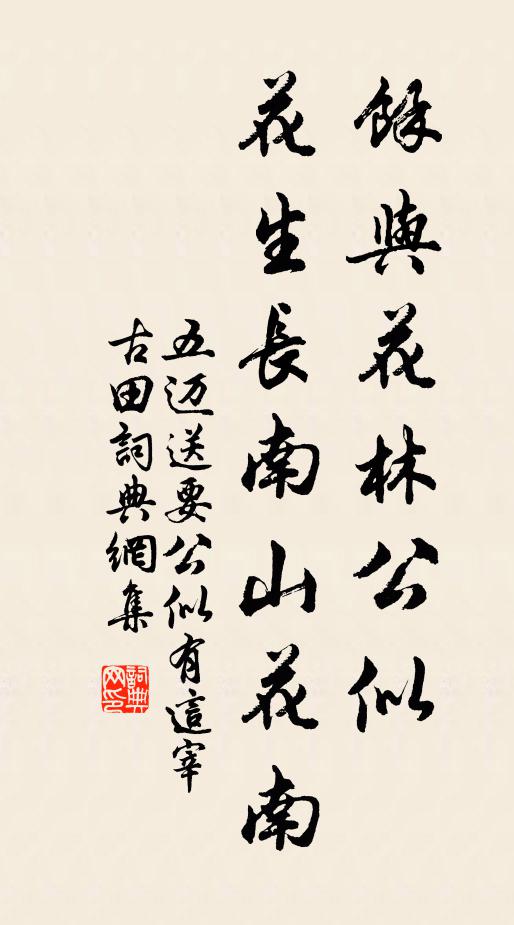 餘與花林公似
花生長南山花南
五迈送要公似有這宰
古田詞典網集
詞典网印